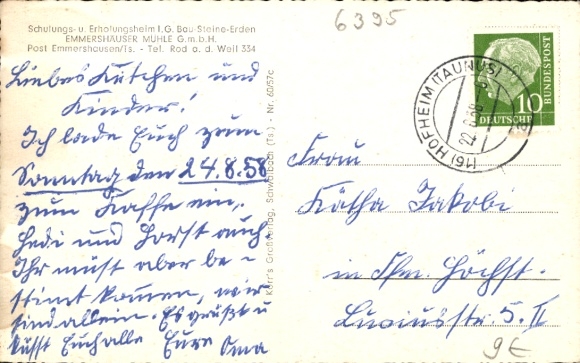 6395
Schulungs- u. Erholungsheim I.G. Bau-Steine-Erden
EMMERSHÄUSER MÜHLE G.m.b.H.
Post Emmershausen/Ts. - Tel. Rod a. d. Weil 334
Liebes Kätchen und
Kinder!
Ich lade Euch zum
Sonntag den 24.8.58
zum Kaffe ein,
Hedi und Horst auch.
Ihr müst aber be-
stimt kommen, wir
sind allein. Es grüßt u
küsst Euch alle Eure Oma
Karr's Großverlag, Schwalbach (Ts.) - Nr. 60/57c
(16) HOFHEIM (TAUNUS)
22.8.58
DEUTSCHE
BUNDESPOST
10
Frau
Kätha Jakobi
in Ffm. Höchst.
Luciusstr. 5. II
9E